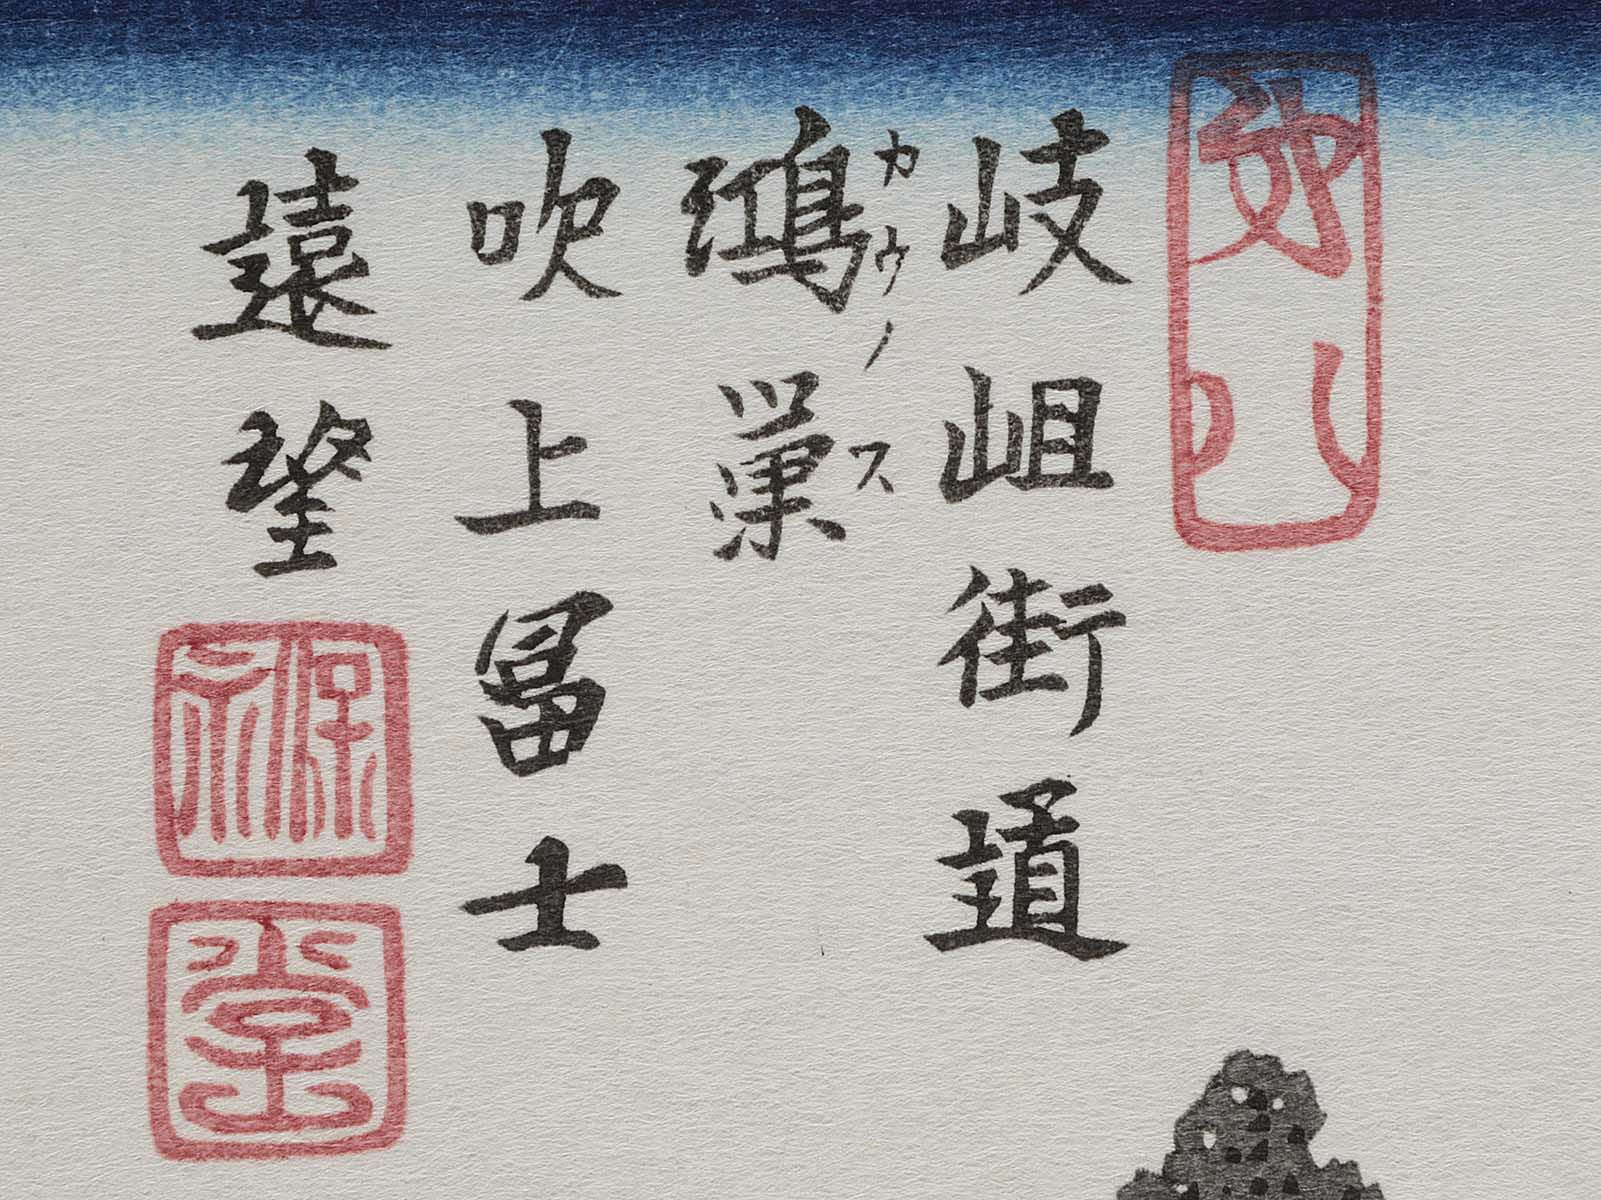 八
岐岨街道
カウノス
鴻巣
吹上冨士
遠望
保永
堂